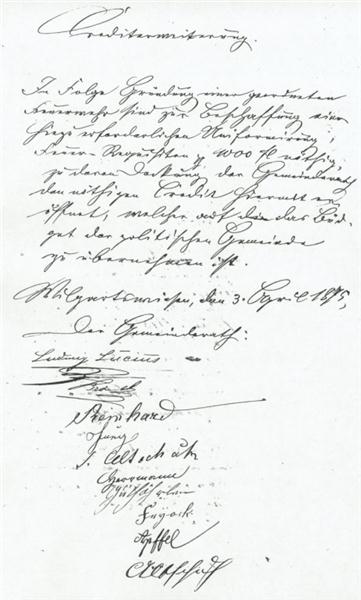 Crediterweiterung.
In Folge Gründung einer geordneten
Feuerwehr sind zur Beschaffung einer
hiezu erforderlichen Uniformirung,
Feuer-Requisiten 1000 fl nöthig,
zu deren Deckung der Gemeinderath
den nöthigen Credit hiermit er-
öffnet, welcher auf das Bud-
get der politischen Gemeinde
zu übernehmen ist.
Wilgartswiesen, den 3. April 1875,
Der Gemeinderath:
Ludwig Lucius
Reinhard
Jung
J. Altschuh
Herrmann
Apffel
Altschuh